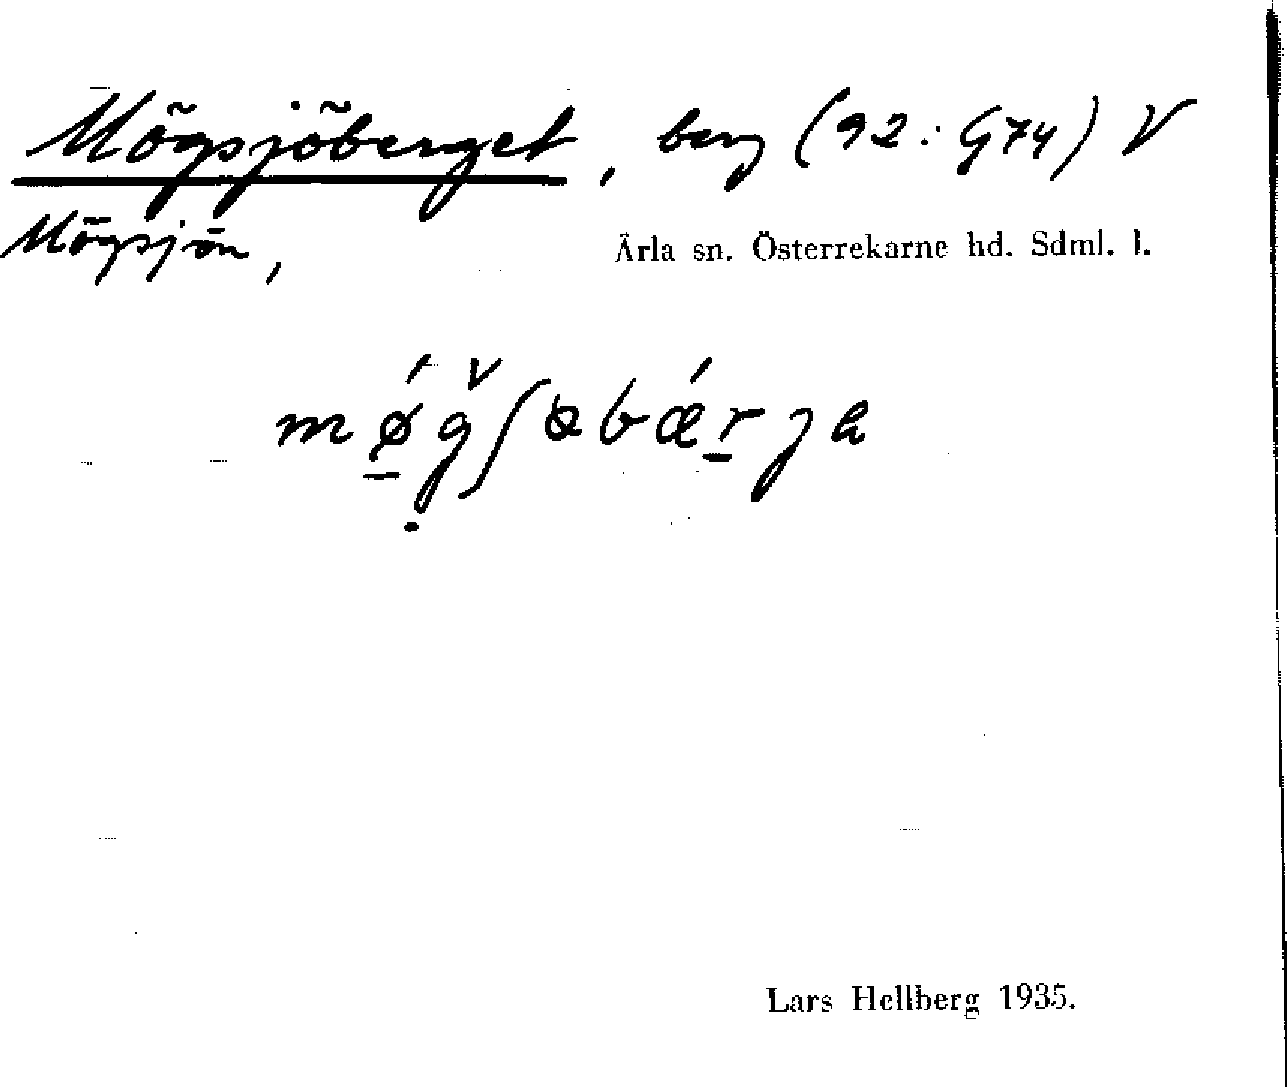 Mögsjöberget, berg (92: G74) V
Mögsjön,
Ärla sn. Österrekarne hd. Sdml. l.
Lars Hellberg 1935.